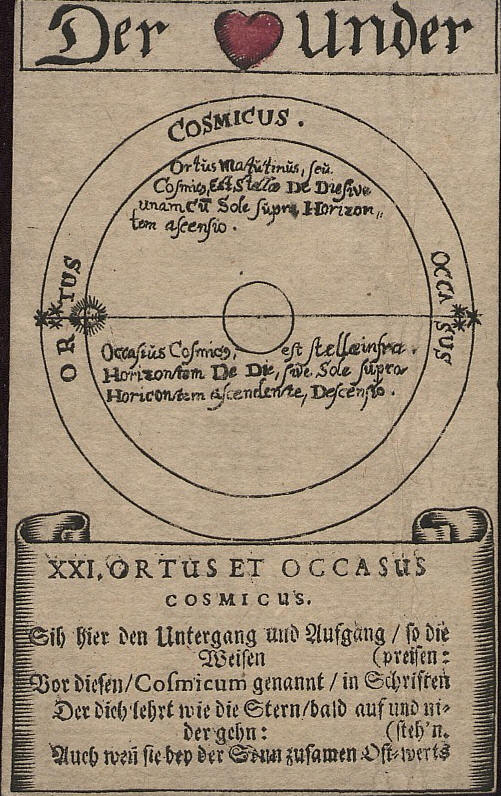 Der Under
COSMICUS.
Ortus Matutinus, seu.
Cosmic9, Est, Stellæ De Die sive
unam cū Sole supra Horizon„
tem ascensio.
ORTUS
OCCASUS
Occasus Cosmic9, est stellæ infra
Horizontem De Die, sive Sole supra
Horicontem ascendente, Descensio.
XXI. ORTUS ET OCCASUS
COSMICUS.
Sih hier den Untergang und Aufgang / so die
Weisen (preisen:
Vor diesen / Cosmicum genannt / in Schriften
Der dich lehrt wie die Stern / bald auf und ni-
der gehn: (steh'n.
Auch weñ sie bey der Sonn zusamen Ost-werts